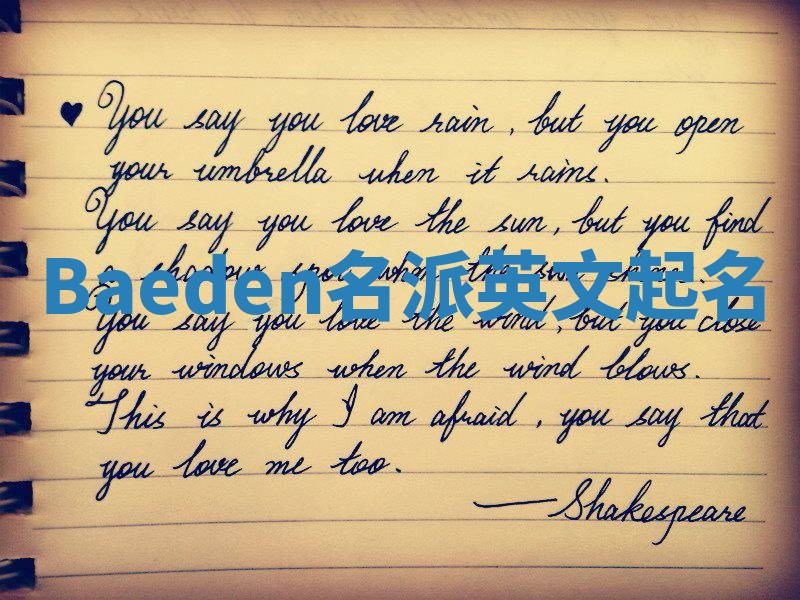 You say you love rain, but you open
your umbrella when it rains.
You say you love the sun, but you find
a shadow spot when the sun shines.
Baeden名派英文起名
You say you love the wind, but you close
your windows when the wind blows.
This is why I am afraid, you say that
you love me too.
—Shakespeare